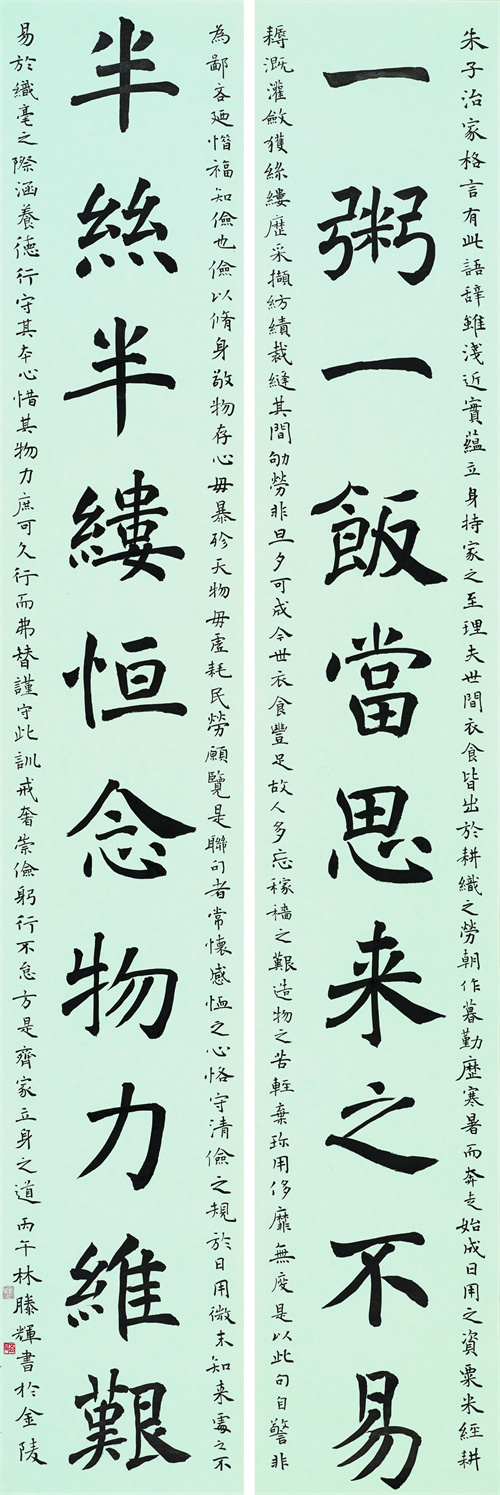 朱子治家格言有此語辞雖淺近實蘊立身持家之至理夫世間衣食皆出於耕織之勞朝作暮勤歷寒暑而奔走始成日用之資粟米經耕
一粥一飯當思来之不易
耨溉灌斂獲絲縷歷采擷紡績裁縫其間劬勞非旦夕可成今世衣食豐足故人多忘稼穡之艱造物之苦輕棄珎用侈靡無度是以此句自警非
為鄙吝陋惜福知儉也儉以脩身敬物存心毋暴殄天物毋虛耗民勞願覽是聯句者常懷感恤之心恪守清儉之規於日用微末知来處之不
半絲半縷恒念物力維艱
易於織毫之際涵養德行守其本心惜其物力庶可久行而弗替謹守此訓戒奢崇儉躬行不怠方是齊家立身之道丙午林滕輝書於金陵